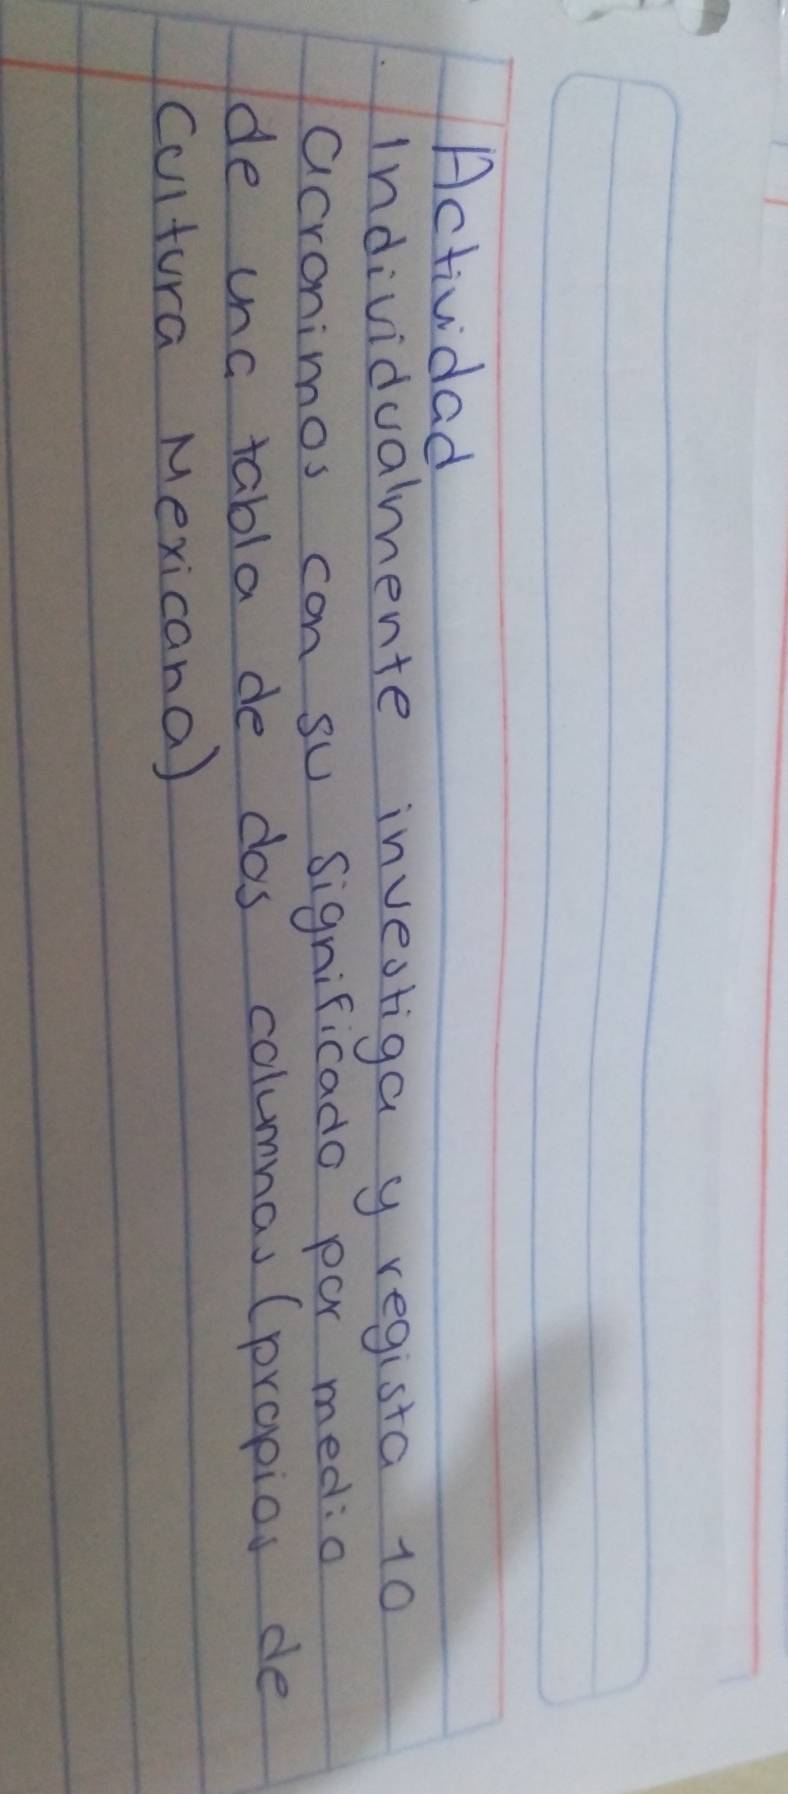 Actividad
Individualmente investiga y regista 10
acronimos con su significado por medio
de una tabla de dos columnas (propios de
Cultura Mexicana)